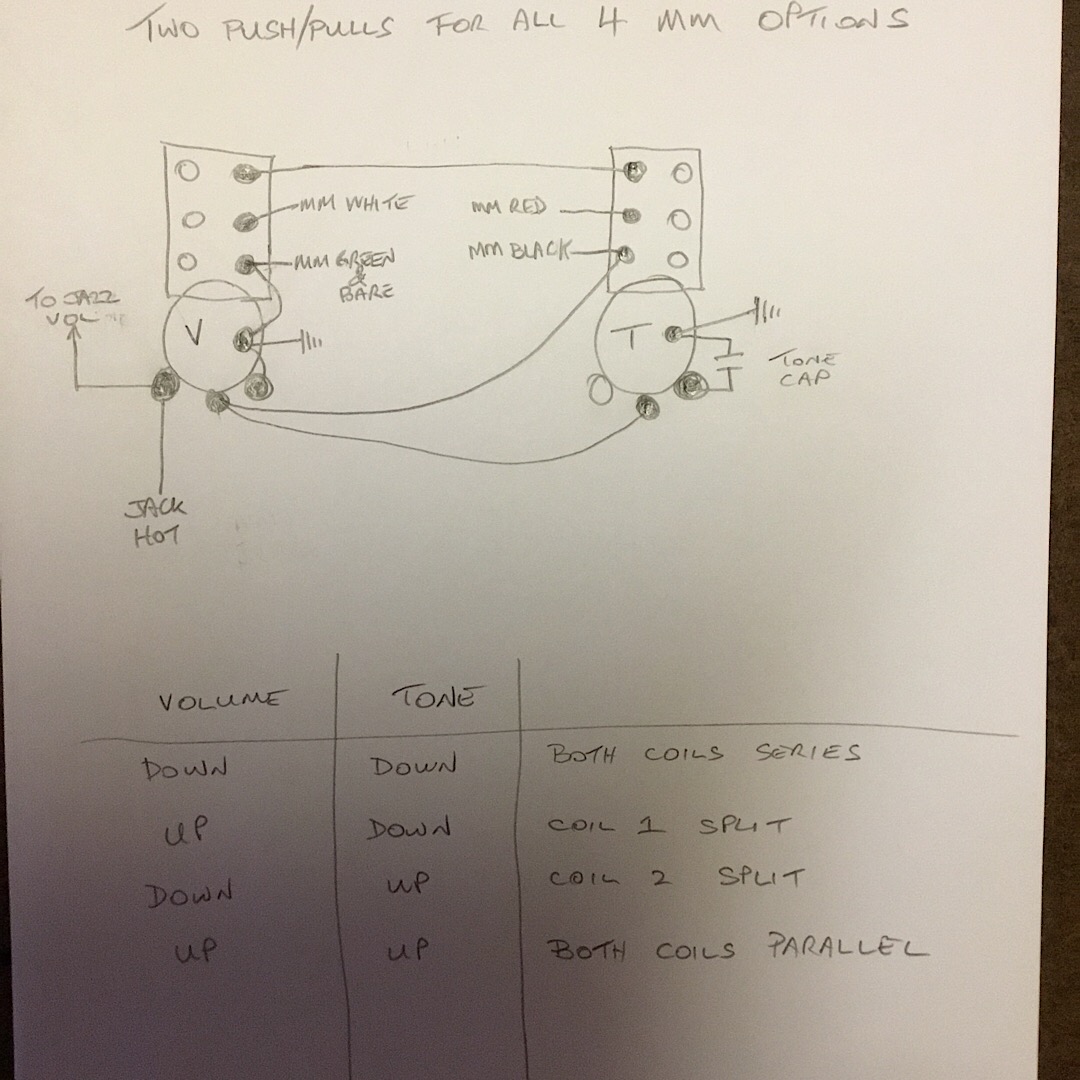 TWO PUSH/PULLS FOR ALL 4 MM OPTIONS
MM WHITE
MM RED
MM GREEN
&
BARE
MM BLACK
TO JAZZ
VOL
V
T
TONE
CAP
JACK
HOT
VOLUME TONE
DOWN DOWN BOTH COILS SERIES
UP DOWN COIL 1 SPLIT
DOWN UP COIL 2 SPLIT
UP UP BOTH COILS PARALLEL